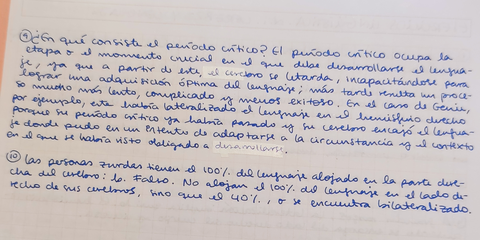 ⑨ ¿En qué consiste el período crítico? El período crítico ocupa la
etapa o el momento crucial en el que debe desarrollarse el lengua-
je, ya que a partir de este, el cerebro se retarda, incapacitándose para
lograr una adquisición óptima del lenguaje; más tarde resulta un proce-
so mucho más lento, complicado y menos exitoso. En el caso de Genie,
por ejemplo, esta había lateralizado el lenguaje en el hemisferio derecho
porque su período crítico ya había pasado y su cerebro encajó el lengua-
je donde pudo en un intento de adaptarse a la circunstancia y el contexto
en el que se había visto obligado a desarrollarse.
⑩ Las personas zurdas tienen el 100% del lenguaje alojado en la parte dere-
cha del cerebro: b. Falso. No alojan el 100% del lenguaje en el lado de-
recho de sus cerebros, sino que el 40%, o se encuentra bilateralizado.